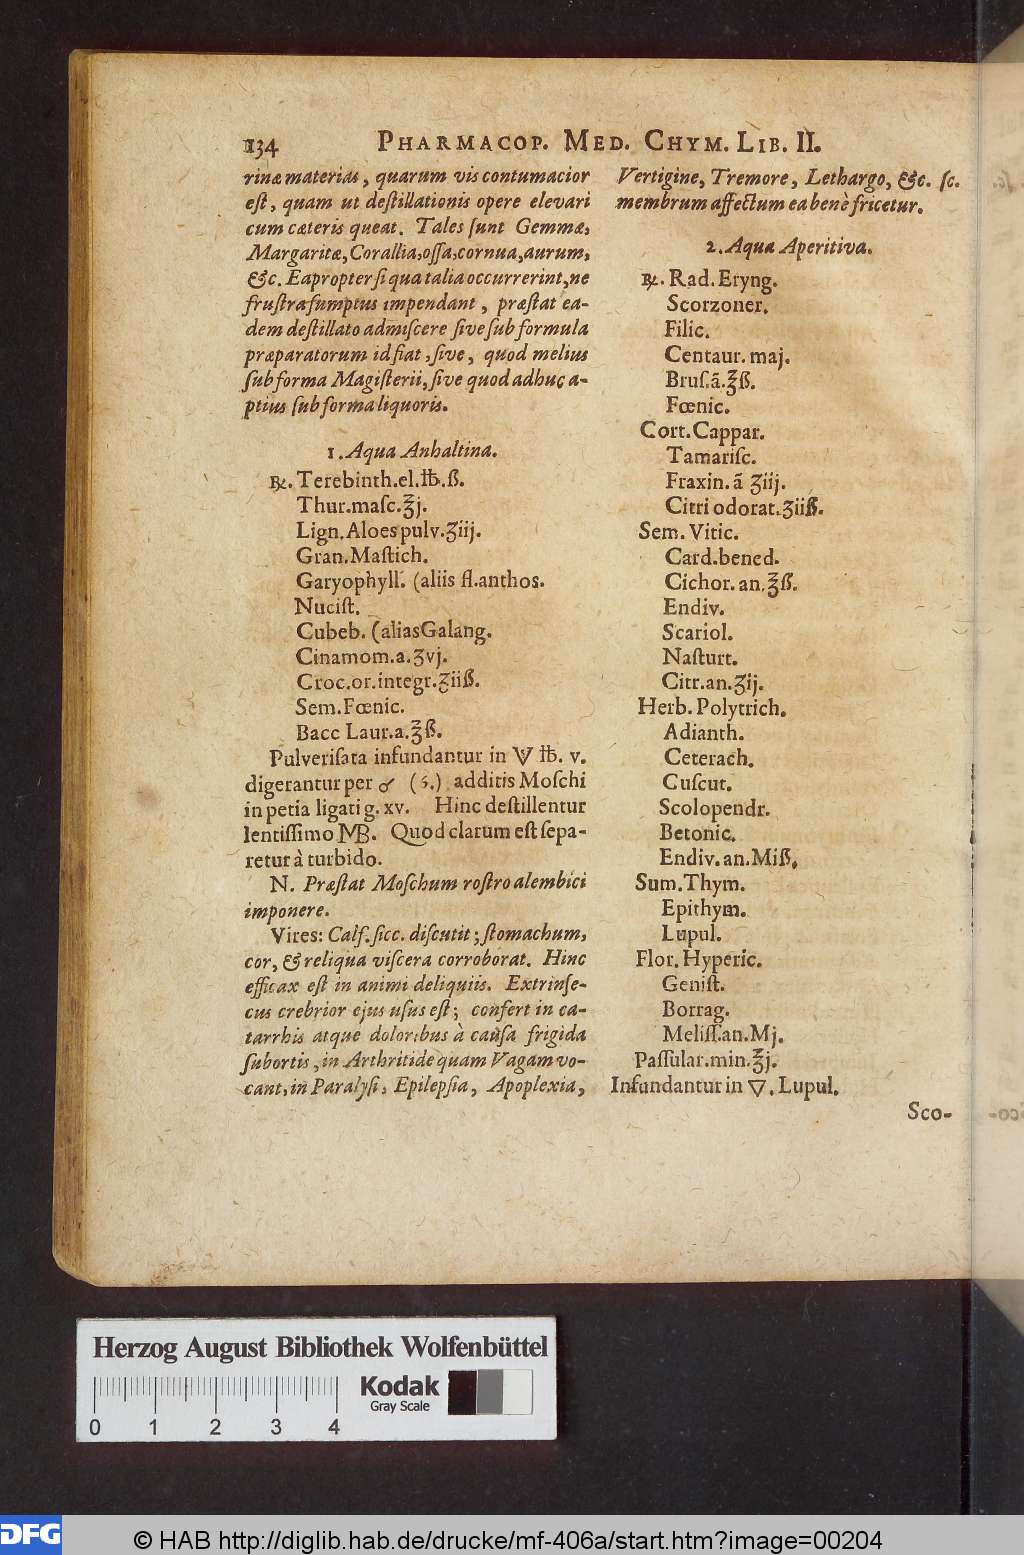 134 PHARMACOP. MED. CHYM. LIB. II.
rinæ materiâs, quarum vis contumacior
eſt, quam ut deſtillationis opere elevari
cum cæteris queat. Tales ſunt Gemmæ,
Margaritæ, Corallia, oſſa, cornua, aurum,
&c. Eapropter ſi qua talia occurrerint, ne
fruſtra ſumptus impendant, præſtat ea-
dem deſtillato admiſcere ſive ſub formula
præparatorum id fiat, ſive, quod melius
ſub forma Magiſterii, ſive quod adhuc a-
ptius ſub forma liquoris.
1. Aqua Anhaltina.
℞. Terebinth. el. ℔. ß.
Thur. maſc. ℥j.
Lign. Aloes pulv. ʒiij.
Gran. Maſtich.
Garyophyll. (aliis fl. anthos.
Nuciſt.
Cubeb. (alias Galang.
Cinamom. a. ʒvj.
Croc. or. integr. ʒiiß.
Sem. Fœnic.
Bacc Laur. a. ℥ß.
Pulveriſata infundantur in ℔. v.
digerantur per ♂ (6.) additis Moſchi
in petia ligati g. xv. Hinc deſtillentur
lentiſſimo MB. Quod clarum eſt ſepa-
retur à turbido.
N. Præſtat Moſchum roſtro alembici
imponere.
Vires: Calf. ſicc. diſcutit; ſtomachum,
cor, & reliqua viſcera corroborat. Hinc
efficax eſt in animi deliquiis. Extrinſe-
cus crebrior ejus uſus eſt; confert in ca-
tarrhis atque doloribus à cauſa frigida
ſubortis, in Arthritide quam Vagam vo-
cant, in Paralyſi, Epilepſia, Apoplexia,
Vertigine, Tremore, Lethargo, &c. ſc.
membrum affectum ea benè fricetur.
2. Aqua Aperitiva.
℞. Rad. Eryng.
Scorzoner.
Filic.
Centaur. maj.
Bruſ. ã. ℥ß.
Fœnic.
Cort. Cappar.
Tamariſc.
Fraxin. ã ʒiij.
Citri odorat. ʒiiß.
Sem. Vitic.
Card. bened.
Cichor. an. ℥ß.
Endiv.
Scariol.
Naſturt.
Citr. an. ʒij.
Herb. Polytrich.
Adianth.
Ceterach.
Cuſcut.
Scolopendr.
Betonic.
Endiv. an. Miß.
Sum. Thym.
Epithym.
Lupul.
Flor. Hyperic.
Geniſt.
Borrag.
Meliſſ. an. Mj.
Paſſular. min. ℥j.
Infundantur in 🜄. Lupul.
Sco-
Herzog August Bibliothek Wolfenbüttel
Kodak
Gray Scale
0 1 2 3 4
DFG © HAB http://diglib.hab.de/drucke/mf-406a/start.htm?image=00204